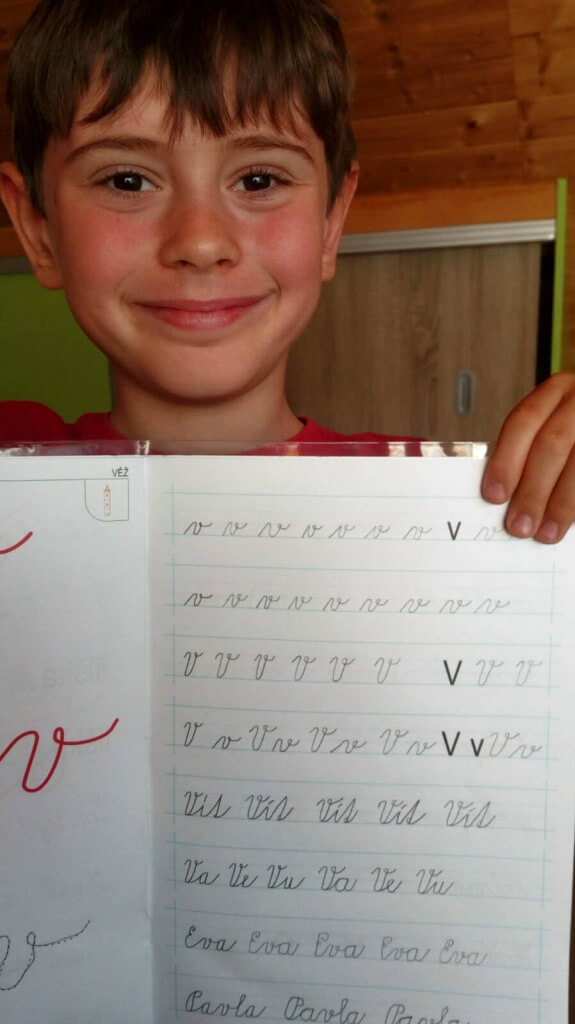 VĚŽ
v v v v v v v v v
v v v v v v v v v
V V V V V V V V V
V v V v V v V v V v V v
Vít Vít Vít Vít Vít
Va Ve Vu Va Ve Vu
Eva Eva Eva Eva Eva
Pavla Pavla Pavla
v
v